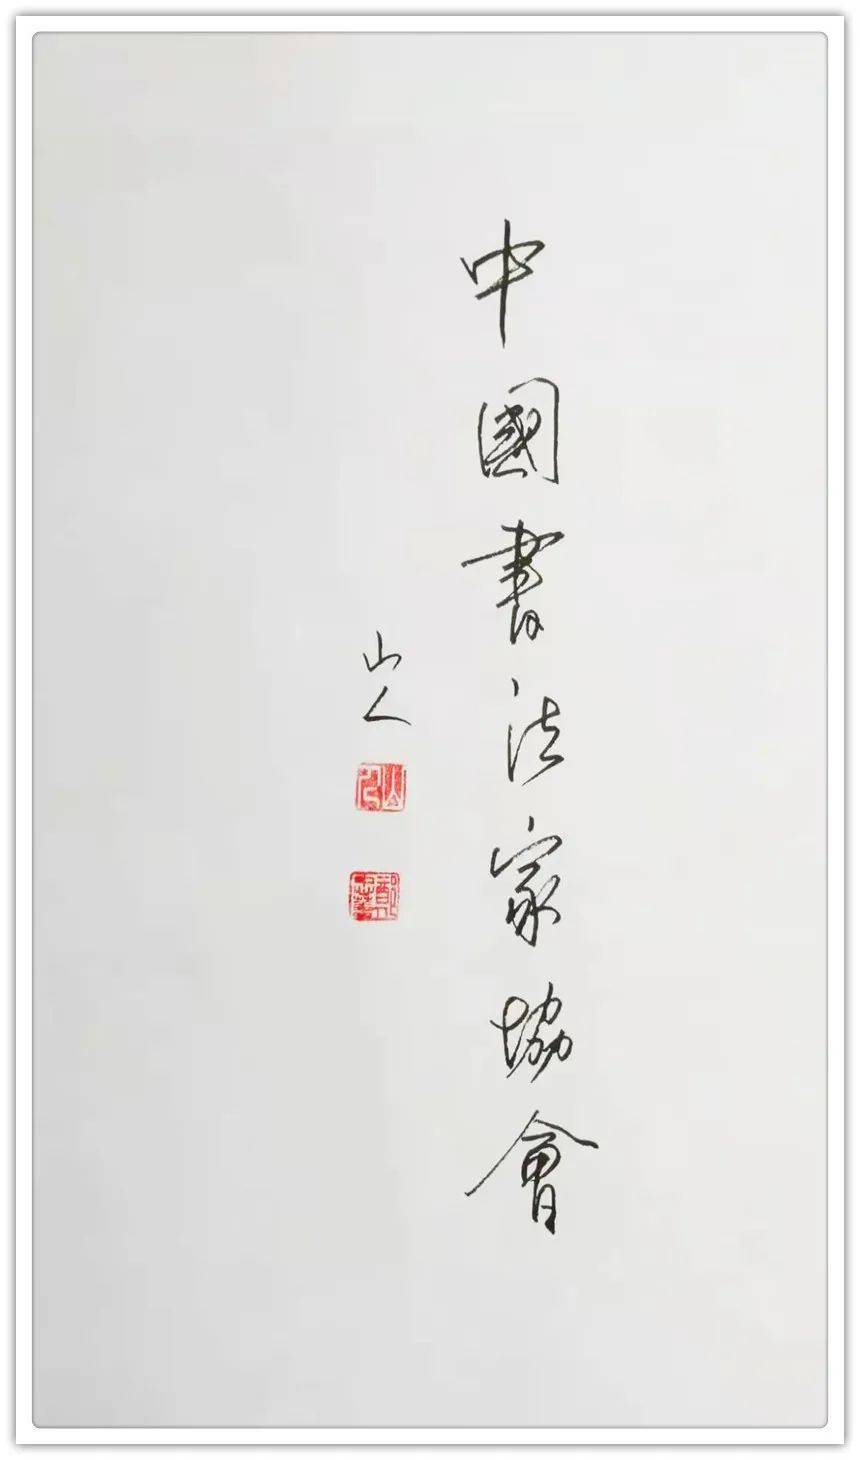 中國書法家協會
山人
山人